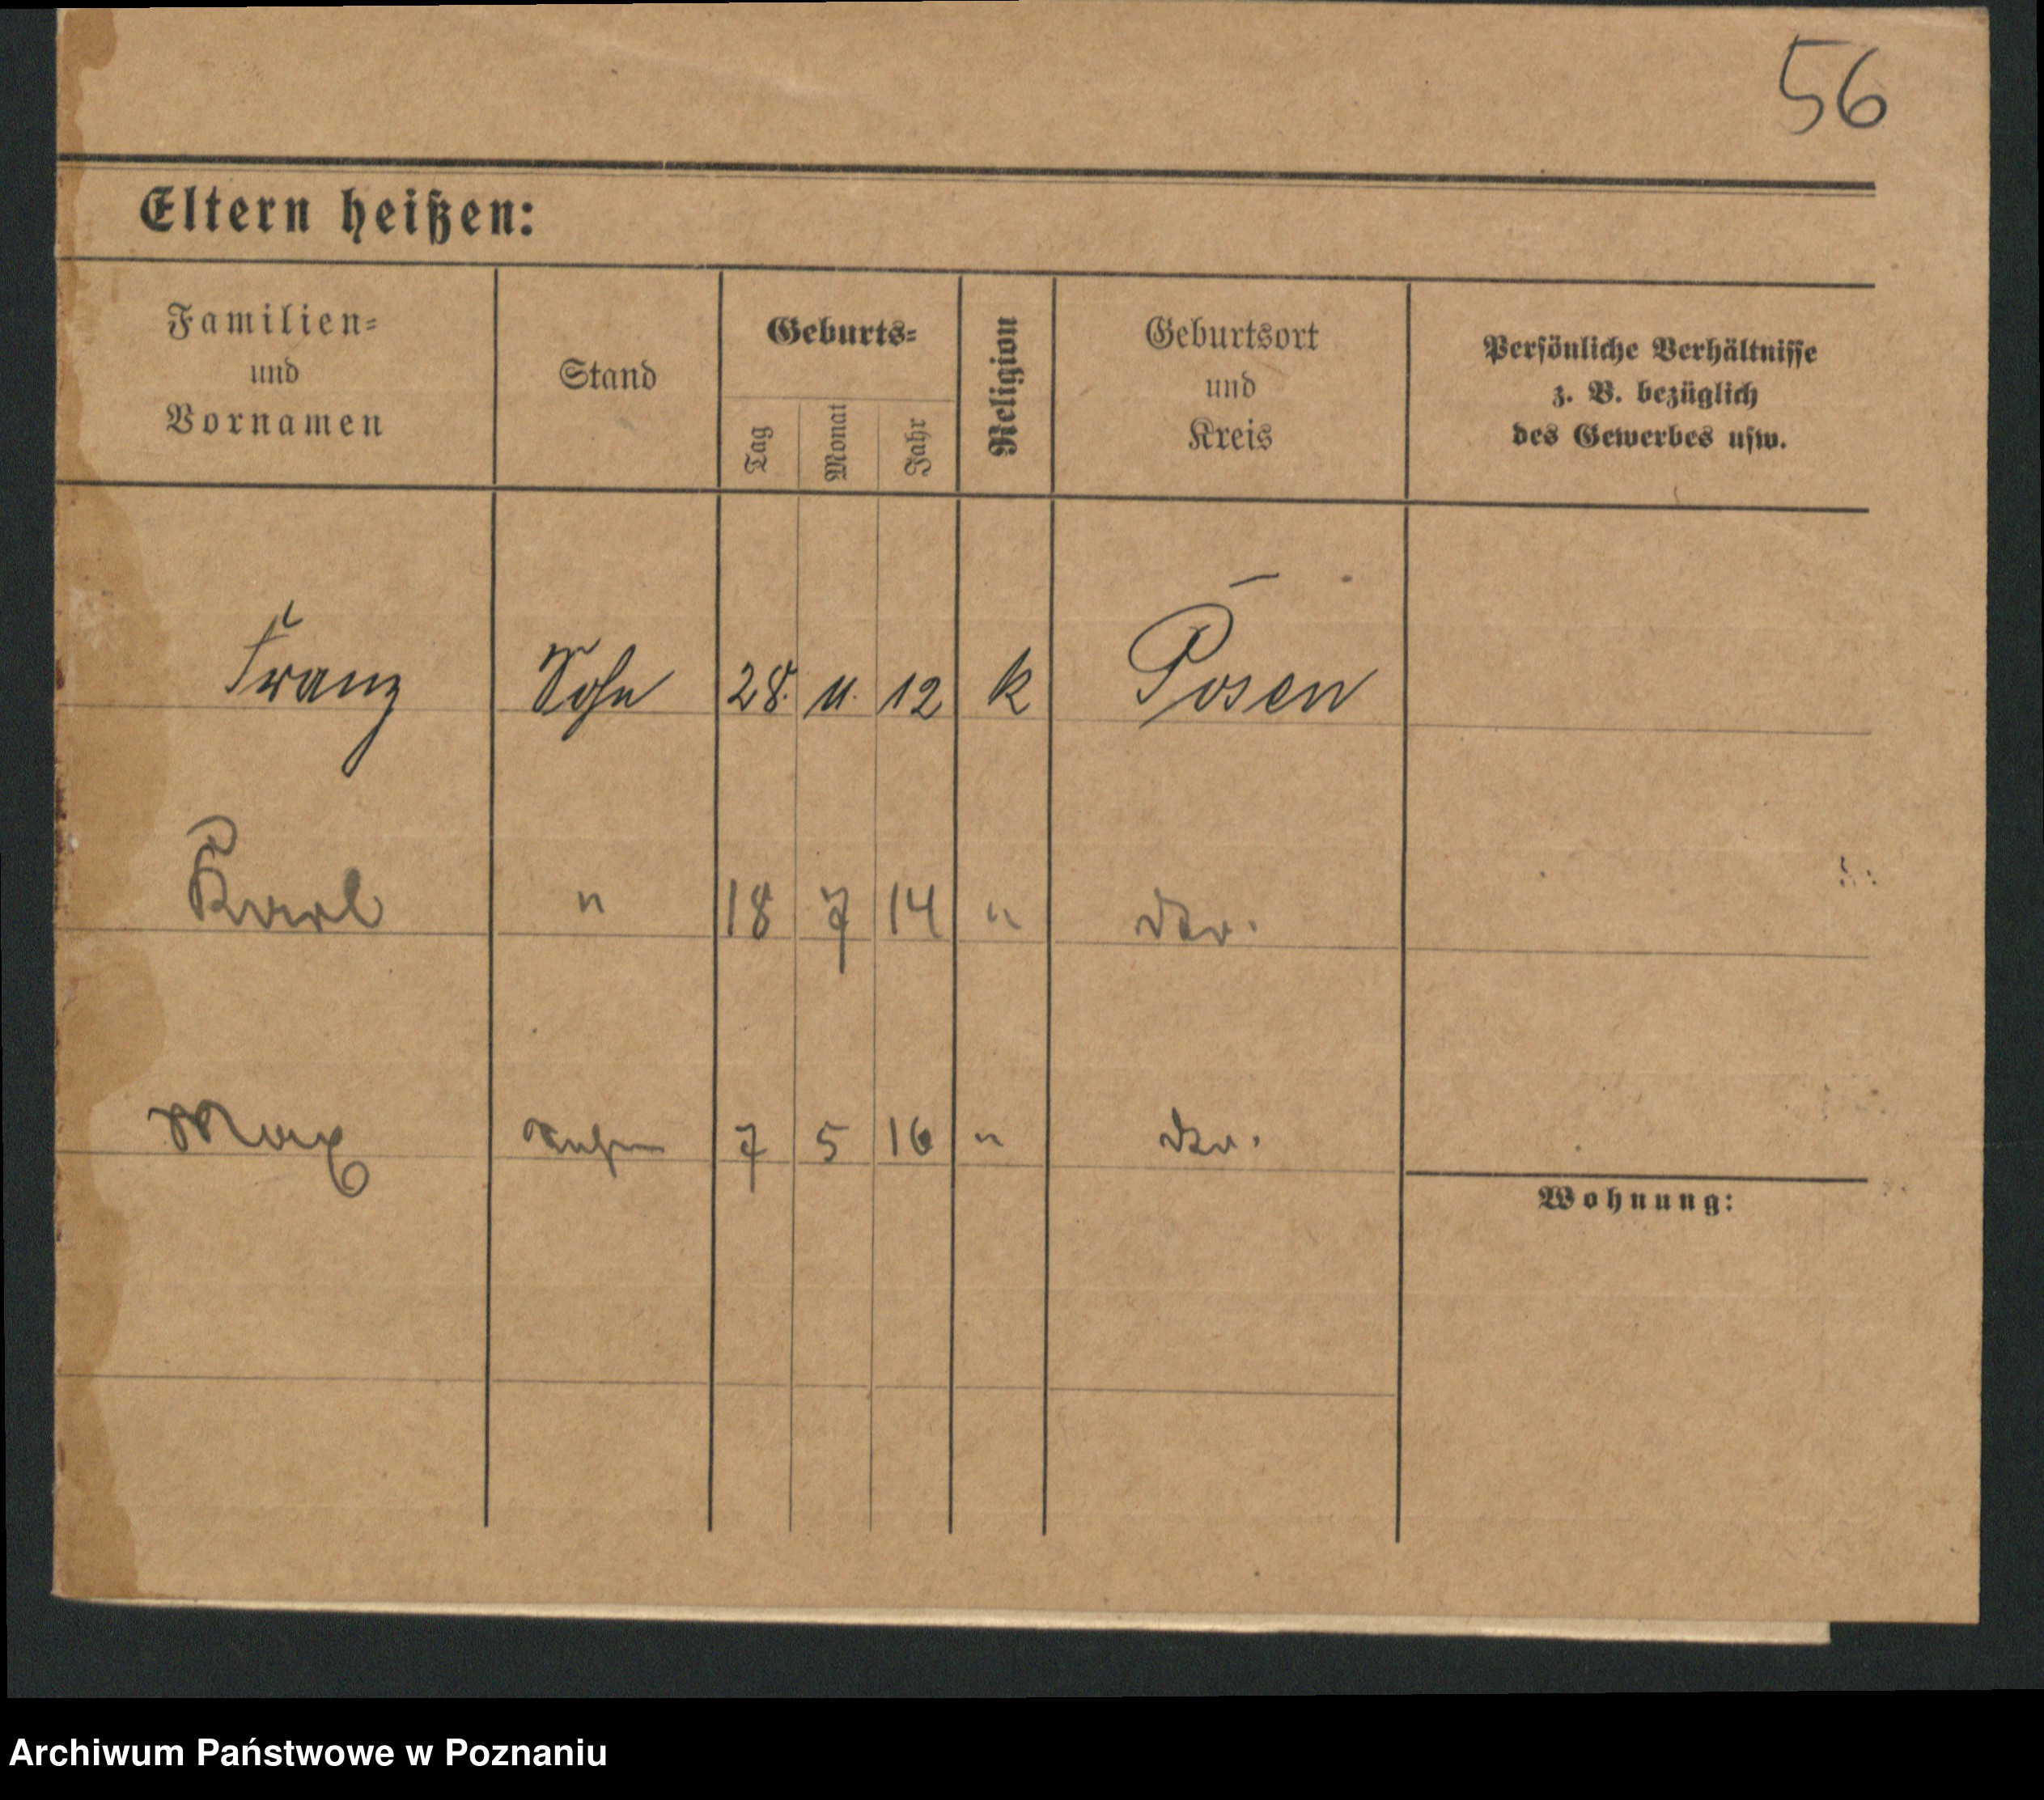 56
Eltern heißen:
Familien=
und
Vornamen
Stand
Geburts=
Tag
Monat
Jahr
Religion
Geburtsort
und
Kreis
Persönliche Verhältnisse
z. B. bezüglich
des Gewerbes usw.
Franz Sohn 28. 11. 12 k Posen
Karl " 18 7 14 "
Max 7 5 16 "
Wohnung:
Archiwum Państwowe w Poznaniu